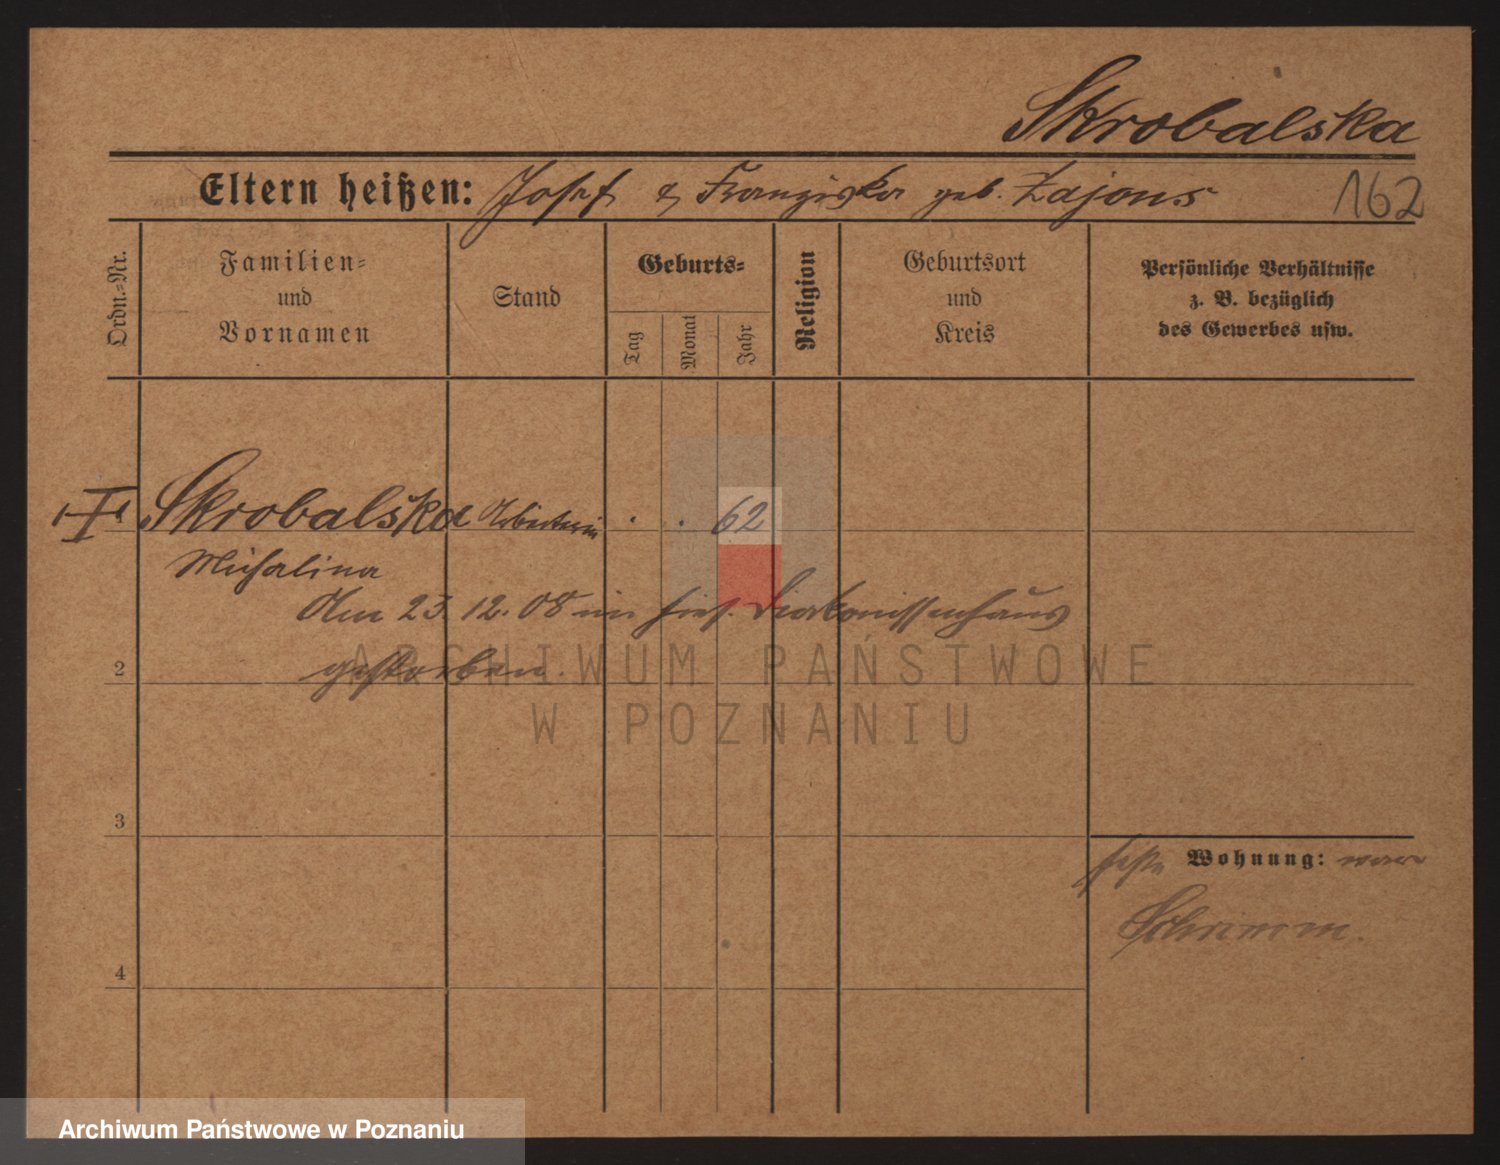 Skrobalska
Eltern heißen: Josef & Franziska geb. Zajons
162
Ordn.-Nr.
Familien-
und
Vornamen
Stand
Geburts-
Tag
Monat
Jahr
Religion
Geburtsort
und
Kreis
Persönliche Verhältnisse
z. B. bezüglich
des Gewerbes usw.
1 Skrobalska Arbeiterin . . 62
Michalina
Am 23. 12. 08 im hies. Diakonissenhaus
2 gestorben.
ARCHIWUM PAŃSTWOWE
W POZNANIU
3
Wohnung: war
Schrimm.
4
Archiwum Państwowe w Poznaniu